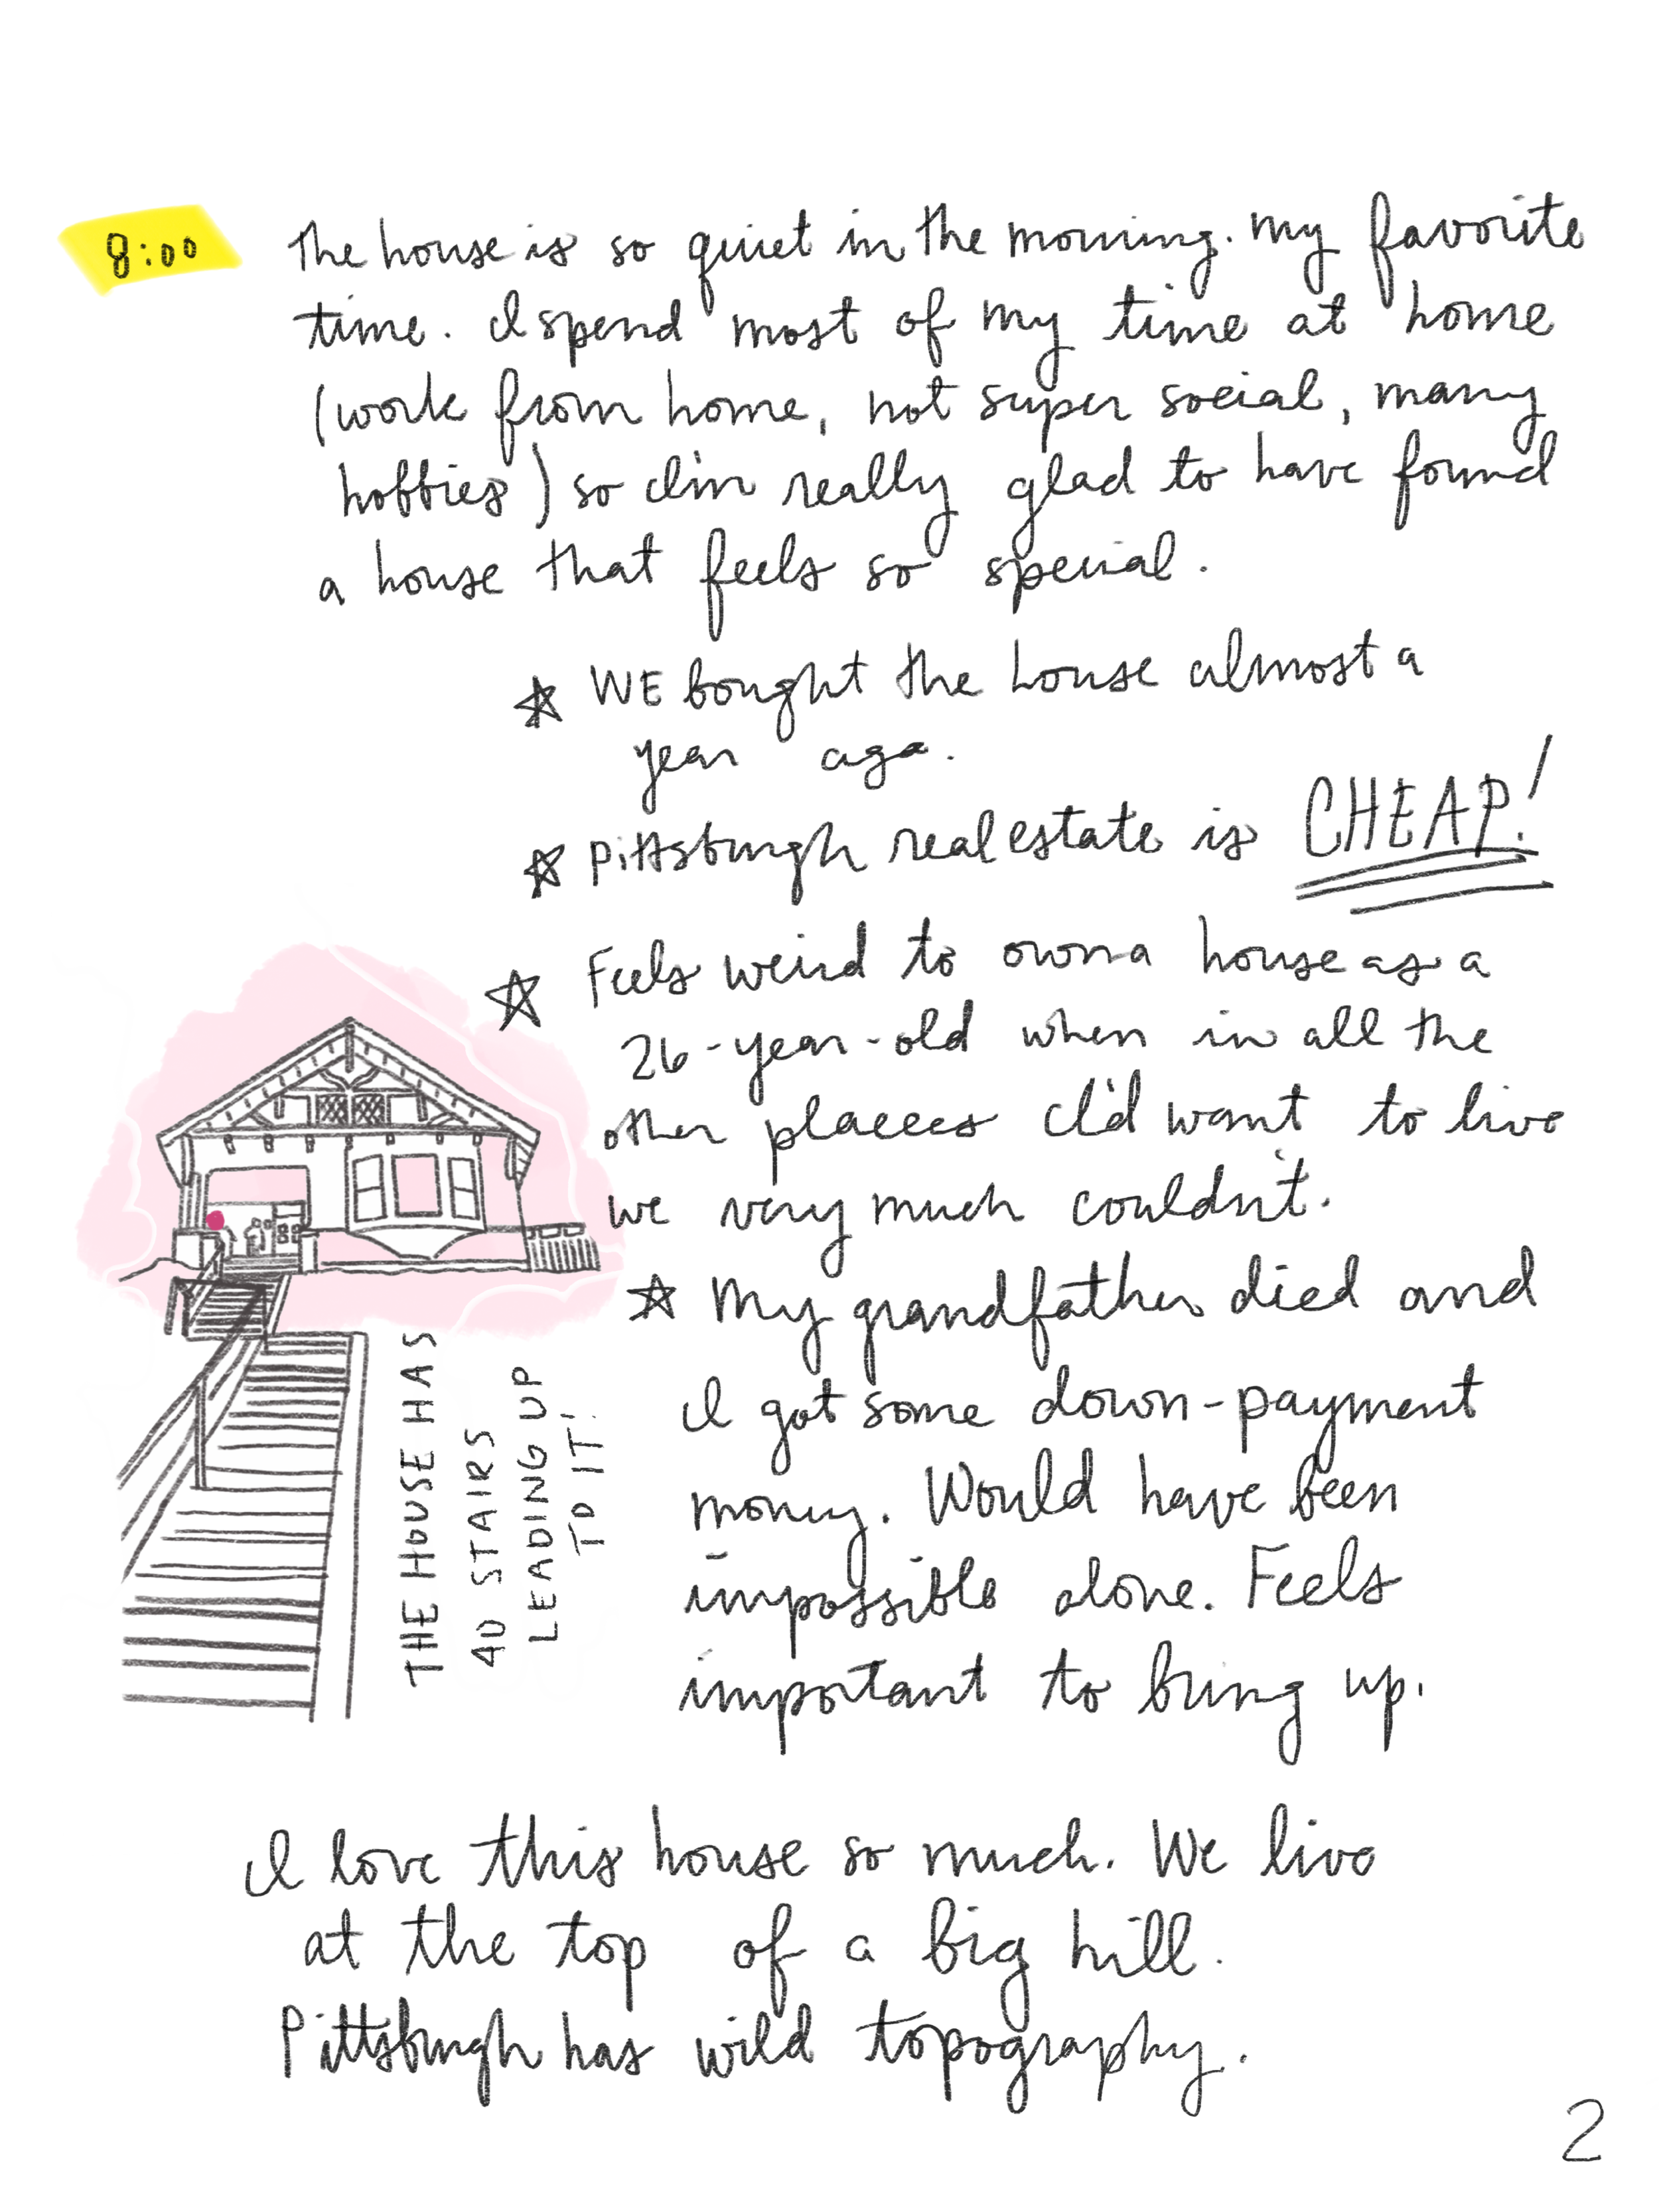 8:00
The house is so quiet in the morning. My favorite
time. I spend most of my time at home
(work from home, not super social, many
hobbies) so I'm really glad to have found
a house that feels so special.
☆ WE bought the house almost a
year ago.
☆ Pittsburgh real estate is CHEAP!
☆ Feels weird to own a house as a
26-year-old when in all the
other places I'd want to live
we very much couldn't.
☆ My grandfather died and
I got some down-payment
money. Would have been
impossible alone. Feels
important to bring up.
THE HOUSE HAS
40 STAIRS
LEADING UP
TO IT!
I love this house so much. We live
at the top of a big hill.
Pittsburgh has wild topography.
2